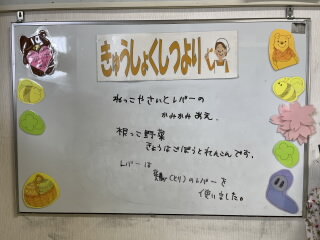 きゅうしょくしつより
ねっこやさいとレバーの
かみかみあえ。
根っこ野菜
きょうはごぼうとれんこんです。
レバーは
鶏(とり)のレバーを
使いました。